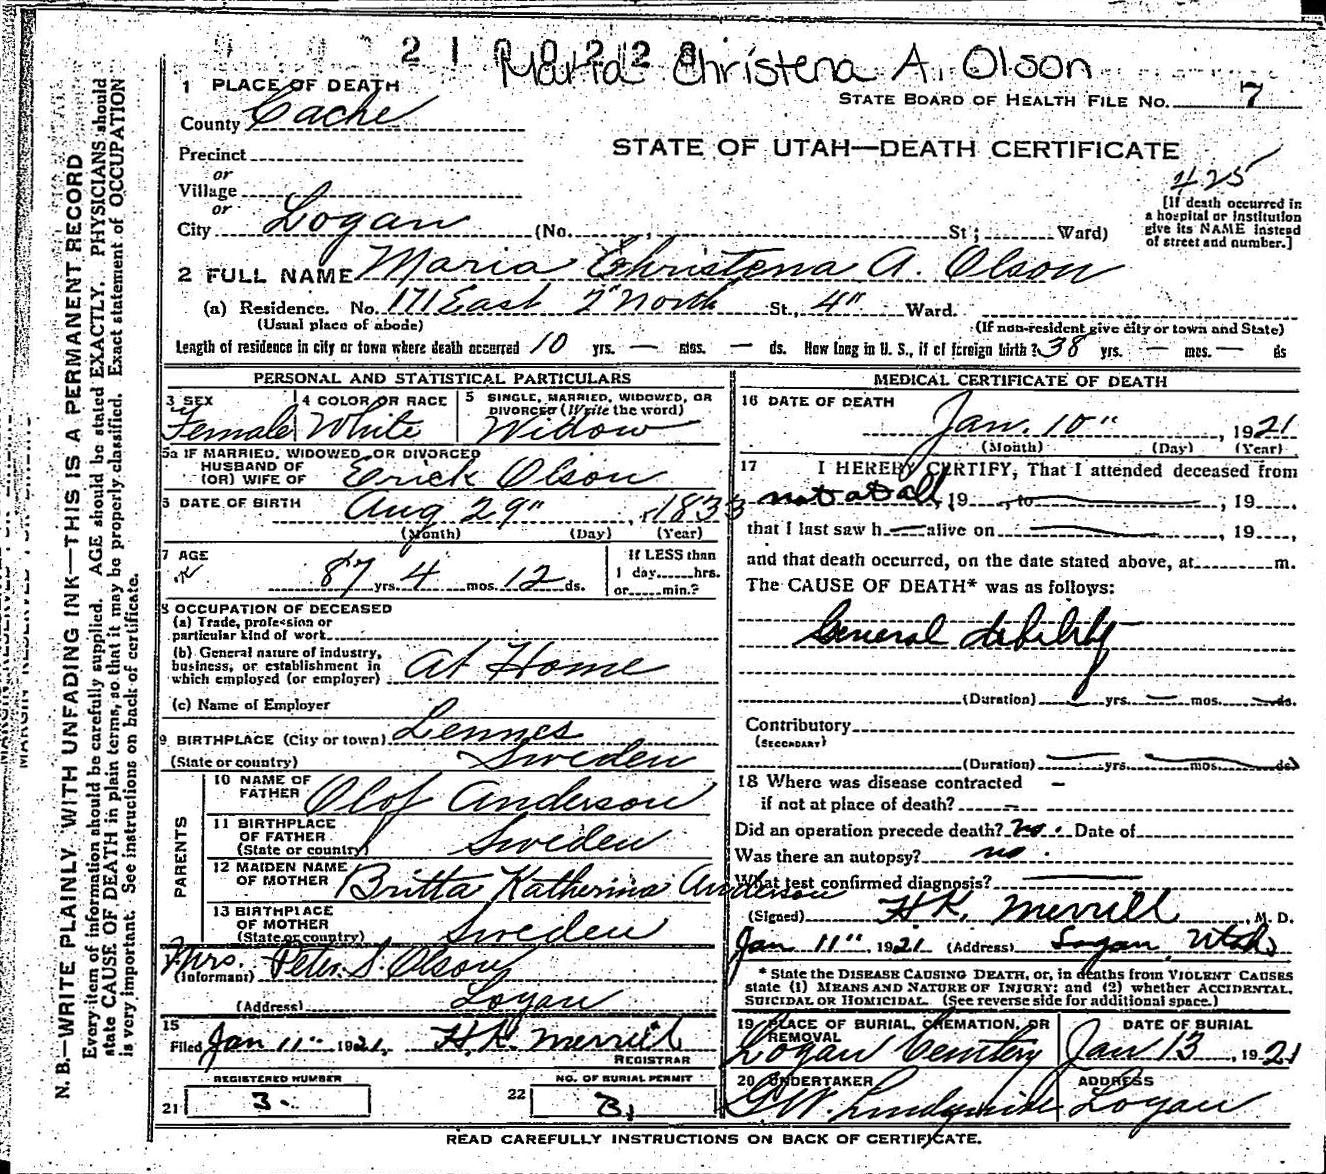 21 0228
Maria Christena A. Olson
1 PLACE OF DEATH
STATE BOARD OF HEALTH FILE NO. 7
County Cache
STATE OF UTAH—DEATH CERTIFICATE
Precinct
or
Village
425
or
City Logan (No. , St; Ward)
[If death occurred in
a hospital or institution
give its NAME instead
of street and number.]
2 FULL NAME Maria Christena A. Olson
(a) Residence. No. 171 East 2" North St., 4" Ward.
(Usual place of abode) (If non-resident give city or town and State)
Length of residence in city or town where death occurred 10 yrs. — mos. — ds. How long in U. S., if of foreign birth? 38 yrs. — mos. — ds
PERSONAL AND STATISTICAL PARTICULARS
3 SEX
Female
4 COLOR OR RACE
White
5 SINGLE, MARRIED, WIDOWED, OR
DIVORCED (Write the word)
Widow
5a IF MARRIED, WIDOWED OR DIVORCED
HUSBAND OF
(OR) WIFE OF Erick Olson
6 DATE OF BIRTH Aug 29", 1833
(Month) (Day) (Year)
7 AGE
87 yrs. 4 mos. 12 ds.
If LESS than
1 day......hrs.
or......min.?
8 OCCUPATION OF DECEASED
(a) Trade, profession or
particular kind of work
(b) General nature of industry,
business, or establishment in
which employed (or employer) At Home
(c) Name of Employer
9 BIRTHPLACE (City or town) Lennes
(State or country) Sweden
PARENTS
10 NAME OF
FATHER Olof Anderson
11 BIRTHPLACE
OF FATHER
(State or country) Sweden
12 MAIDEN NAME
OF MOTHER Britta Katherina Anderson
13 BIRTHPLACE
OF MOTHER
(State or country) Sweden
Mrs. Peter S. Olson
(Informant)
(Address) Logan
15
Filed Jan 11" 1921. H.K. Merrill
REGISTRAR
REGISTERED NUMBER
21 3.
NO. OF BURIAL PERMIT
22 3.
MEDICAL CERTIFICATE OF DEATH
16 DATE OF DEATH
Jan. 10", 1921
(Month) (Day) (Year)
17 I HEREBY CERTIFY, That I attended deceased from
not at all, 19 , to , 19 .
that I last saw h — alive on , 19 ,
and that death occurred, on the date stated above, at m.
The CAUSE OF DEATH* was as follows:
General debility
(Duration) yrs. — mos. — ds.
Contributory
(SECONDARY)
(Duration) yrs. mos. ds
18 Where was disease contracted —
if not at place of death? —
Did an operation precede death? no. Date of
Was there an autopsy? no.
What test confirmed diagnosis?
(Signed) H.K. Merrill, M. D.
Jan 11" 1921 (Address) Logan, Utah
* State the DISEASE CAUSING DEATH, or, in deaths from VIOLENT CAUSES
state (1) MEANS AND NATURE OF INJURY; and (2) whether ACCIDENTAL,
SUICIDAL OR HOMICIDAL. (See reverse side for additional space.)
19 PLACE OF BURIAL, CREMATION, OR
REMOVAL
Logan Cemtery
DATE OF BURIAL
Jan 13, 1921
20 UNDERTAKER
G.W. Lindquist
ADDRESS
Logan
READ CAREFULLY INSTRUCTIONS ON BACK OF CERTIFICATE.
MARGIN RESERVED FOR BINDING
N. B.—WRITE PLAINLY, WITH UNFADING INK—THIS IS A PERMANENT RECORD
Every item of information should be carefully supplied. AGE should be stated EXACTLY. PHYSICIANS should
state CAUSE OF DEATH in plain terms, so that it may be properly classified. Exact statement of OCCUPATION
is very important. See instructions on back of certificate.